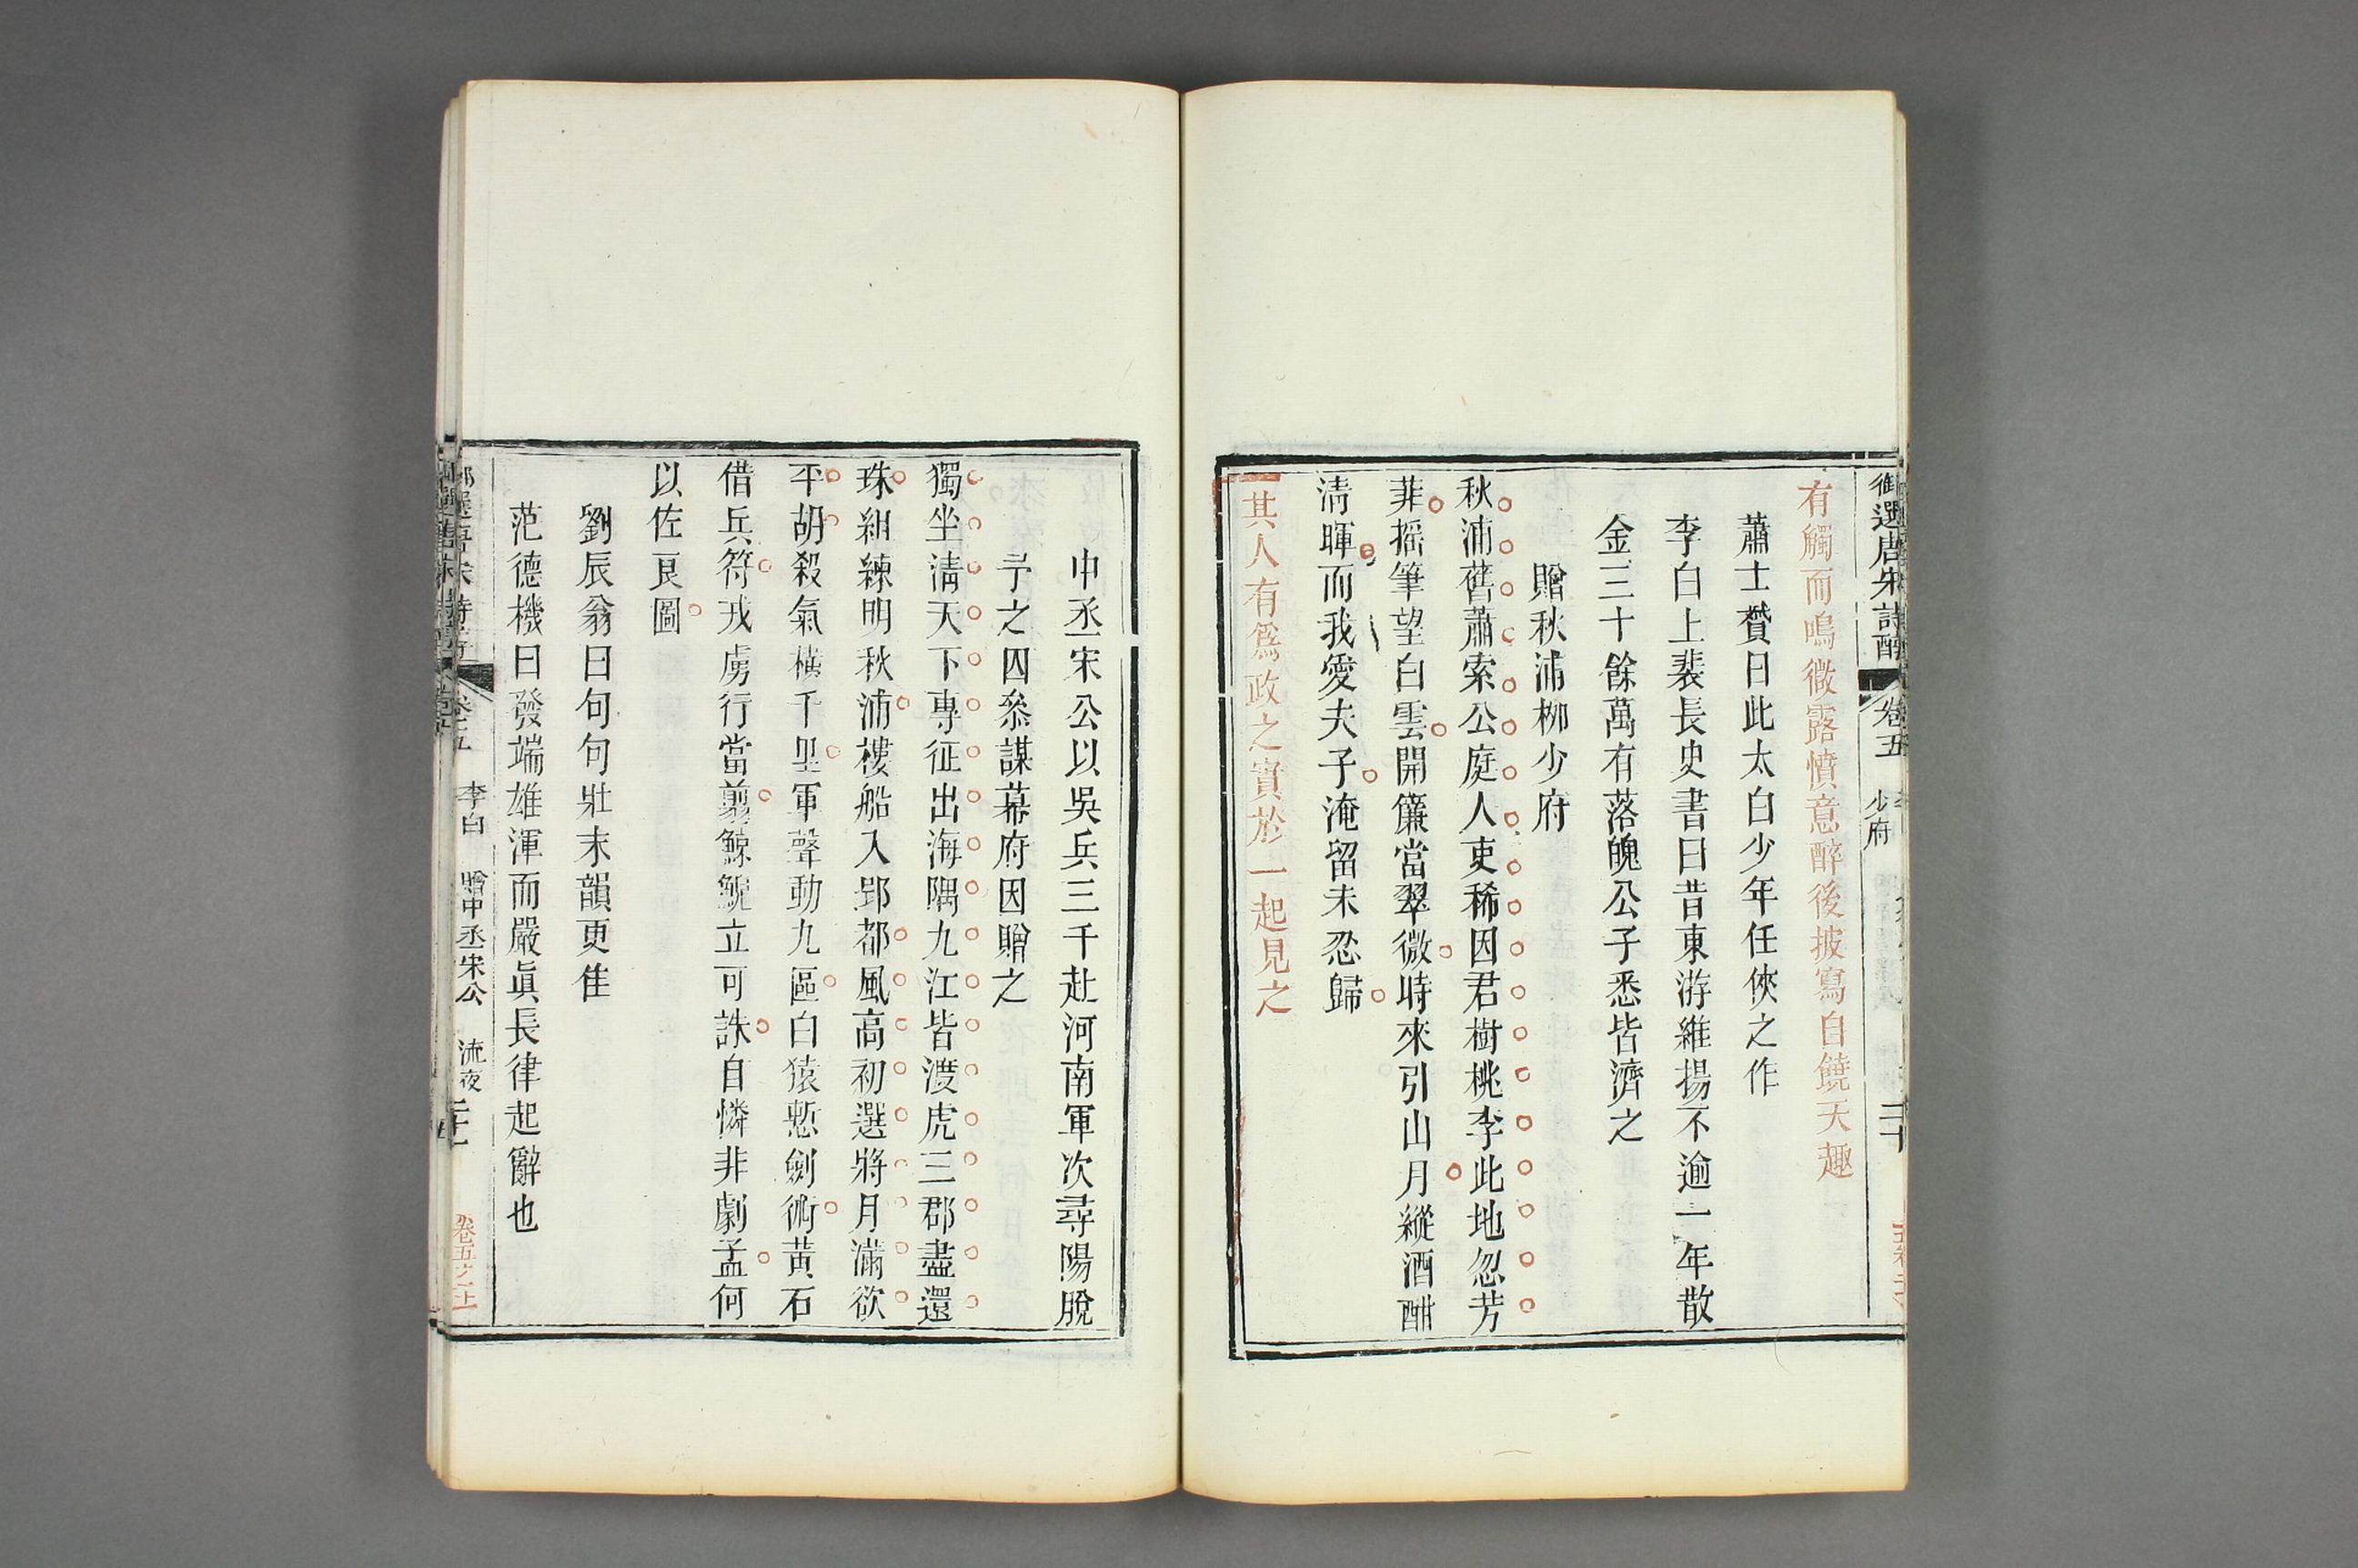 御選唐宋詩醇 卷五 少府 二十
有觸而鳴微露憤意醉後披寫自饒天趣
蕭士贇曰此太白少年任俠之作
李白上裴長史書曰昔東游維揚不逾一年散
金三十餘萬有落魄公子悉皆濟之
贈秋浦柳少府
秋浦舊蕭索公庭人吏稀因君樹桃李此地忽芳
菲搖筆望白雲開簾當翠微時來引山月縱酒酣
清暉而我愛夫子淹留未忍歸
其人有爲政之實於一起見之
中丞宋公以吳兵三千赴河南軍次尋陽脫
予之囚參謀幕府因贈之
獨坐清天下專征出海隅九江皆渡虎三郡盡還
珠組練明秋浦樓船入郢都風高初選將月滿欲
平胡殺氣橫千里軍聲動九區白猿慙劍術黃石
借兵符戎虜行當翦鯨鯢立可誅自憐非劇孟何
以佐良圖
劉辰翁曰句句壯末韻更佳
范德機曰發端雄渾而嚴眞長律起辭也
李白 贈中丞宋公 流夜